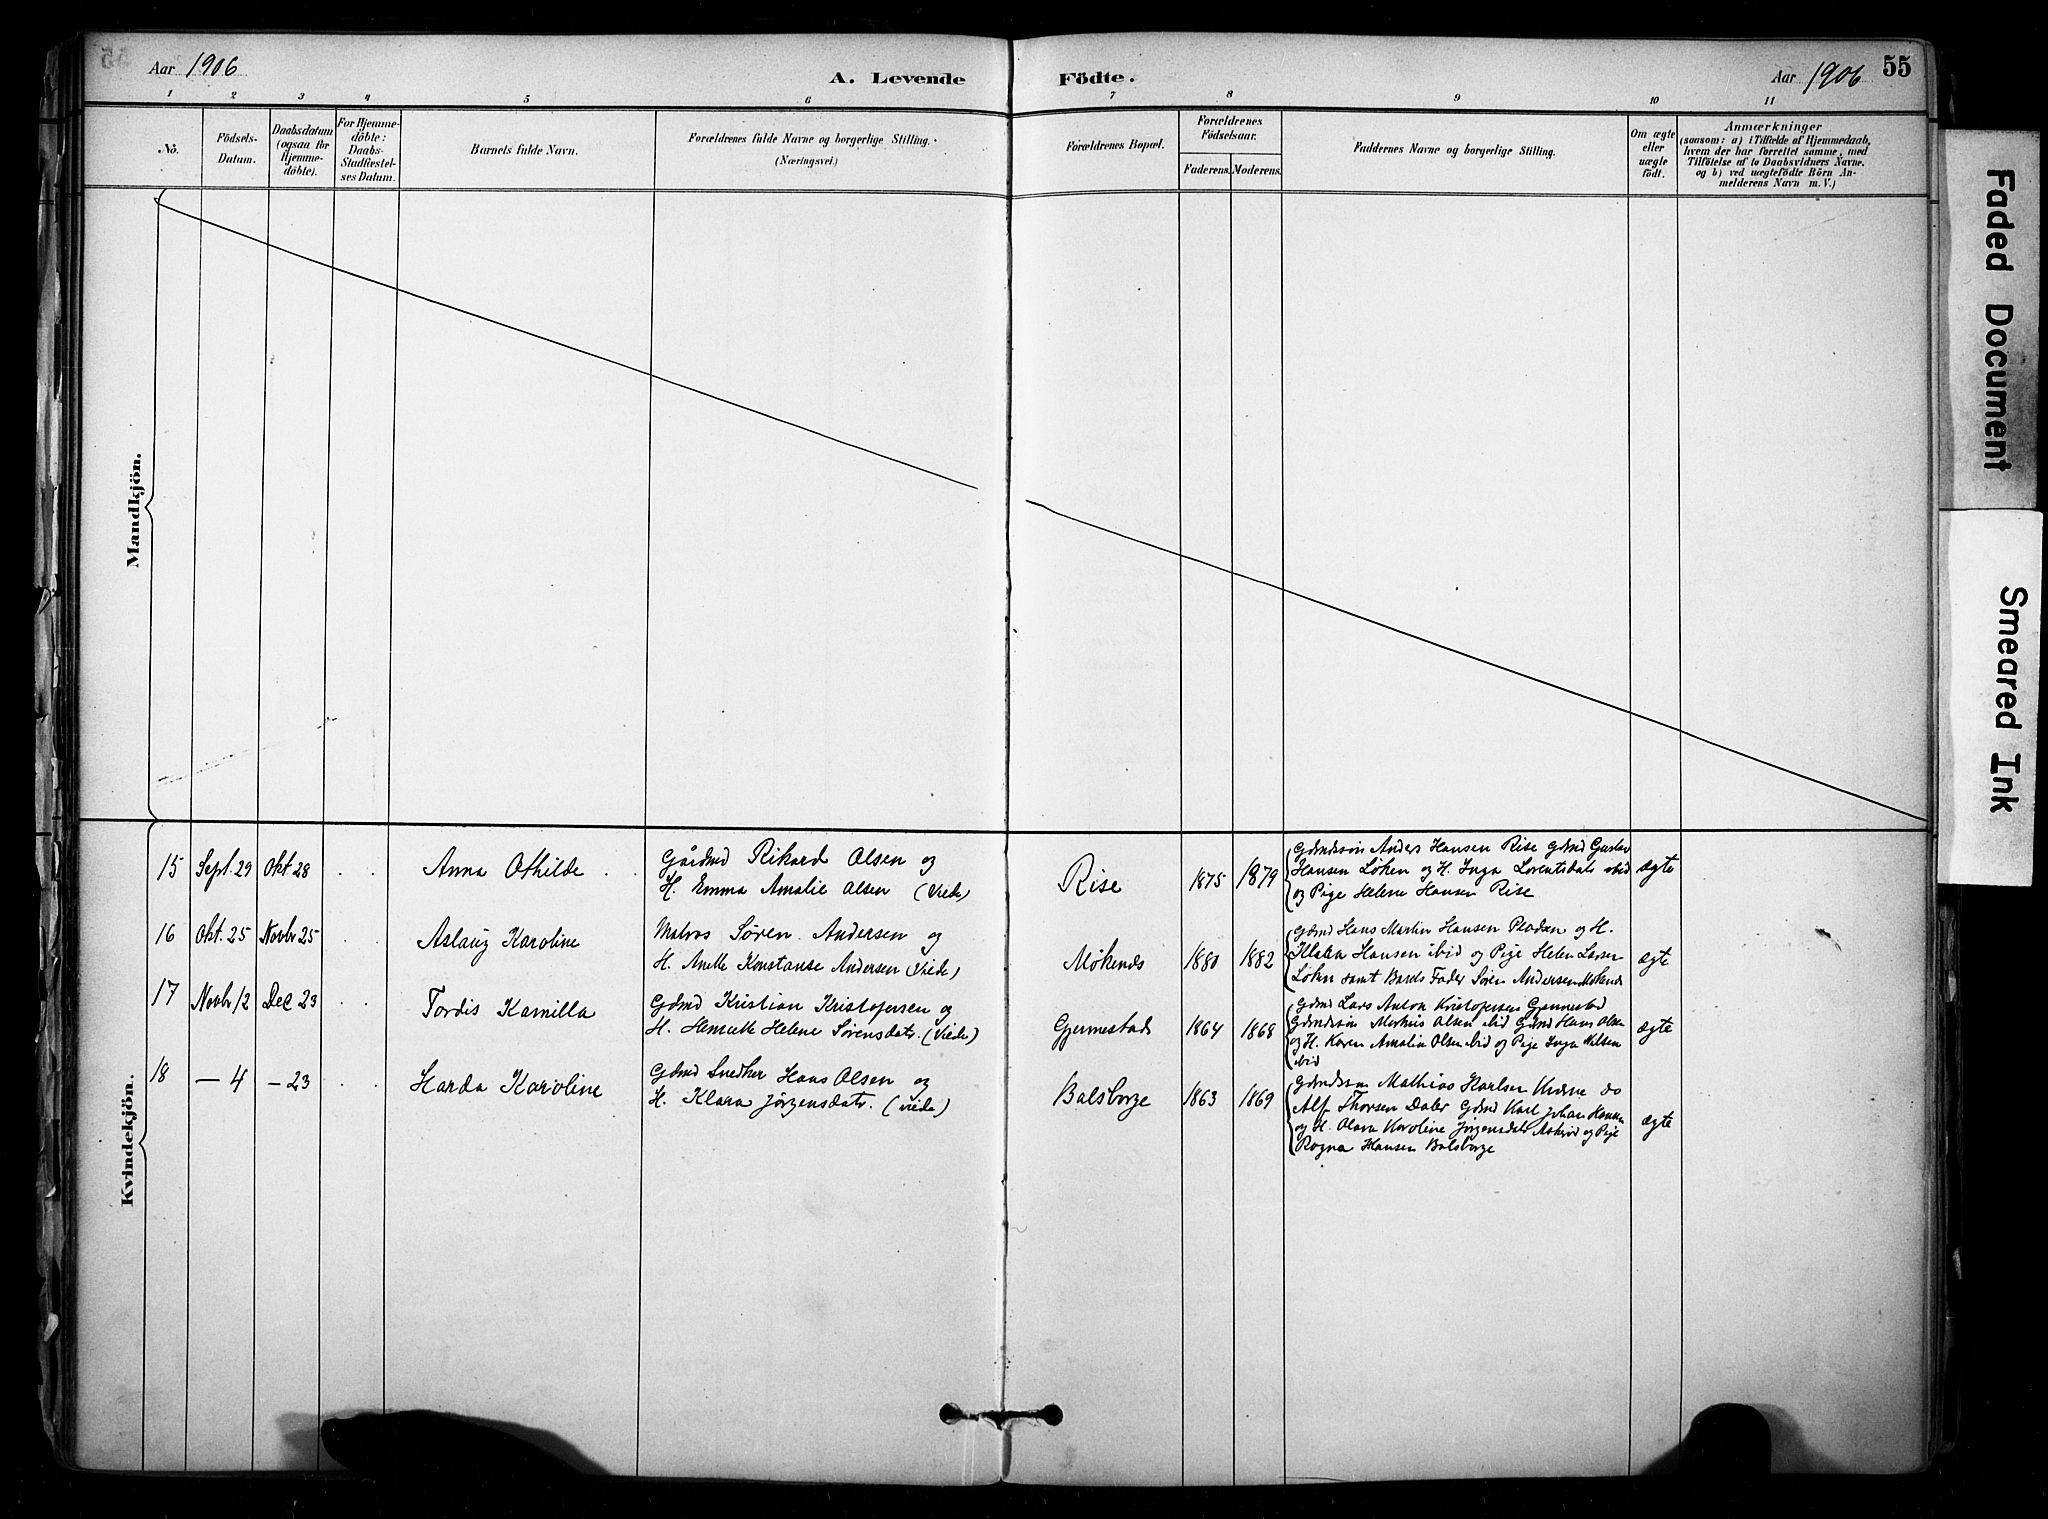 Aar 1906
A. Levende Födte.
Aar 1906 55
1 2 3 4 5 6 7 8 9 10 11
No.
Födsels-
Datum.
Daabsdatum
(ogsaa for
Hjemme-
döbte).
For Hjemme-
döbte:
Daabs-
Stadfæstel-
ses Datum.
Barnets fulde Navn.
Forældrenes fulde Navne og borgerlige Stilling.
(Næringsvei.)
Forældrenes Bopæl.
Forældrenes
Födselsaar.
Faderens. Moderens.
Faddernes Navne og borgerlige Stilling.
Om ægte
eller
uægte
födt.
Anmærkninger
(saasom: a) i Tilfælde af Hjemmedaab,
hvem der har forrettet samme, med
Tilföielse af to Daabsvidners Navne.
og b) ved uægtefödte Börn An-
melderens Navn m. V.)
Mandkjön.
Kvindekjön.
15 Sept. 29 Okt 28 Anna Othilde
Gårdmd Rikard Olsen og
H. Emma Amalie Olsen (Viede)
Rise 1875 1879
Gdmdssøn Anders Hansen Rise gdmd Gustav
Hansen Løken og H. Inga Lorentsdatr ibid
og Pige Helene Hansen Rise
ægte
16 Okt. 25 Novbr 25 Aslaug Karoline
Matros Søren Andersen og
H. Anette Konstanse Andersen (Viede)
Møkenes 1880 1882
Gdmd Hans Martin Hansen og H.
Hansen ibid og Pige Helen Larsen
Løken samt Barnets Fader Søren Andersen Møkenes
ægte
17 Novbr 12 Dec 23 Tordis Kamilla
Gdmd Kristian Kristofersen og
H. Henriette Helene Sørensdatr. (Viede)
Gjennestad 1864 1868
Gdmd Lars Anton Kristofersen Gjennestad
Gdmdssøn Markus Olsen ibid Gdmd Hans Olsen
og H. Karen Amalia Olsen ibid og Pige Inga Nilsen
ibid
ægte
18 — 4 — 23 Harda Karoline
Gdmd Snedker Hans Olsen og
H. Klara Jørgensdatr. (viede)
Bålsborge 1863 1869
Gdmdssøn Mathias Karlsen do
Alf Thorsen Daler Gdmd Karl Johan
og H. Olava Karoline Jørgensdatr og Pige
Ragna Hansen Bålsborge
ægte
Faded Document
Smeared Ink